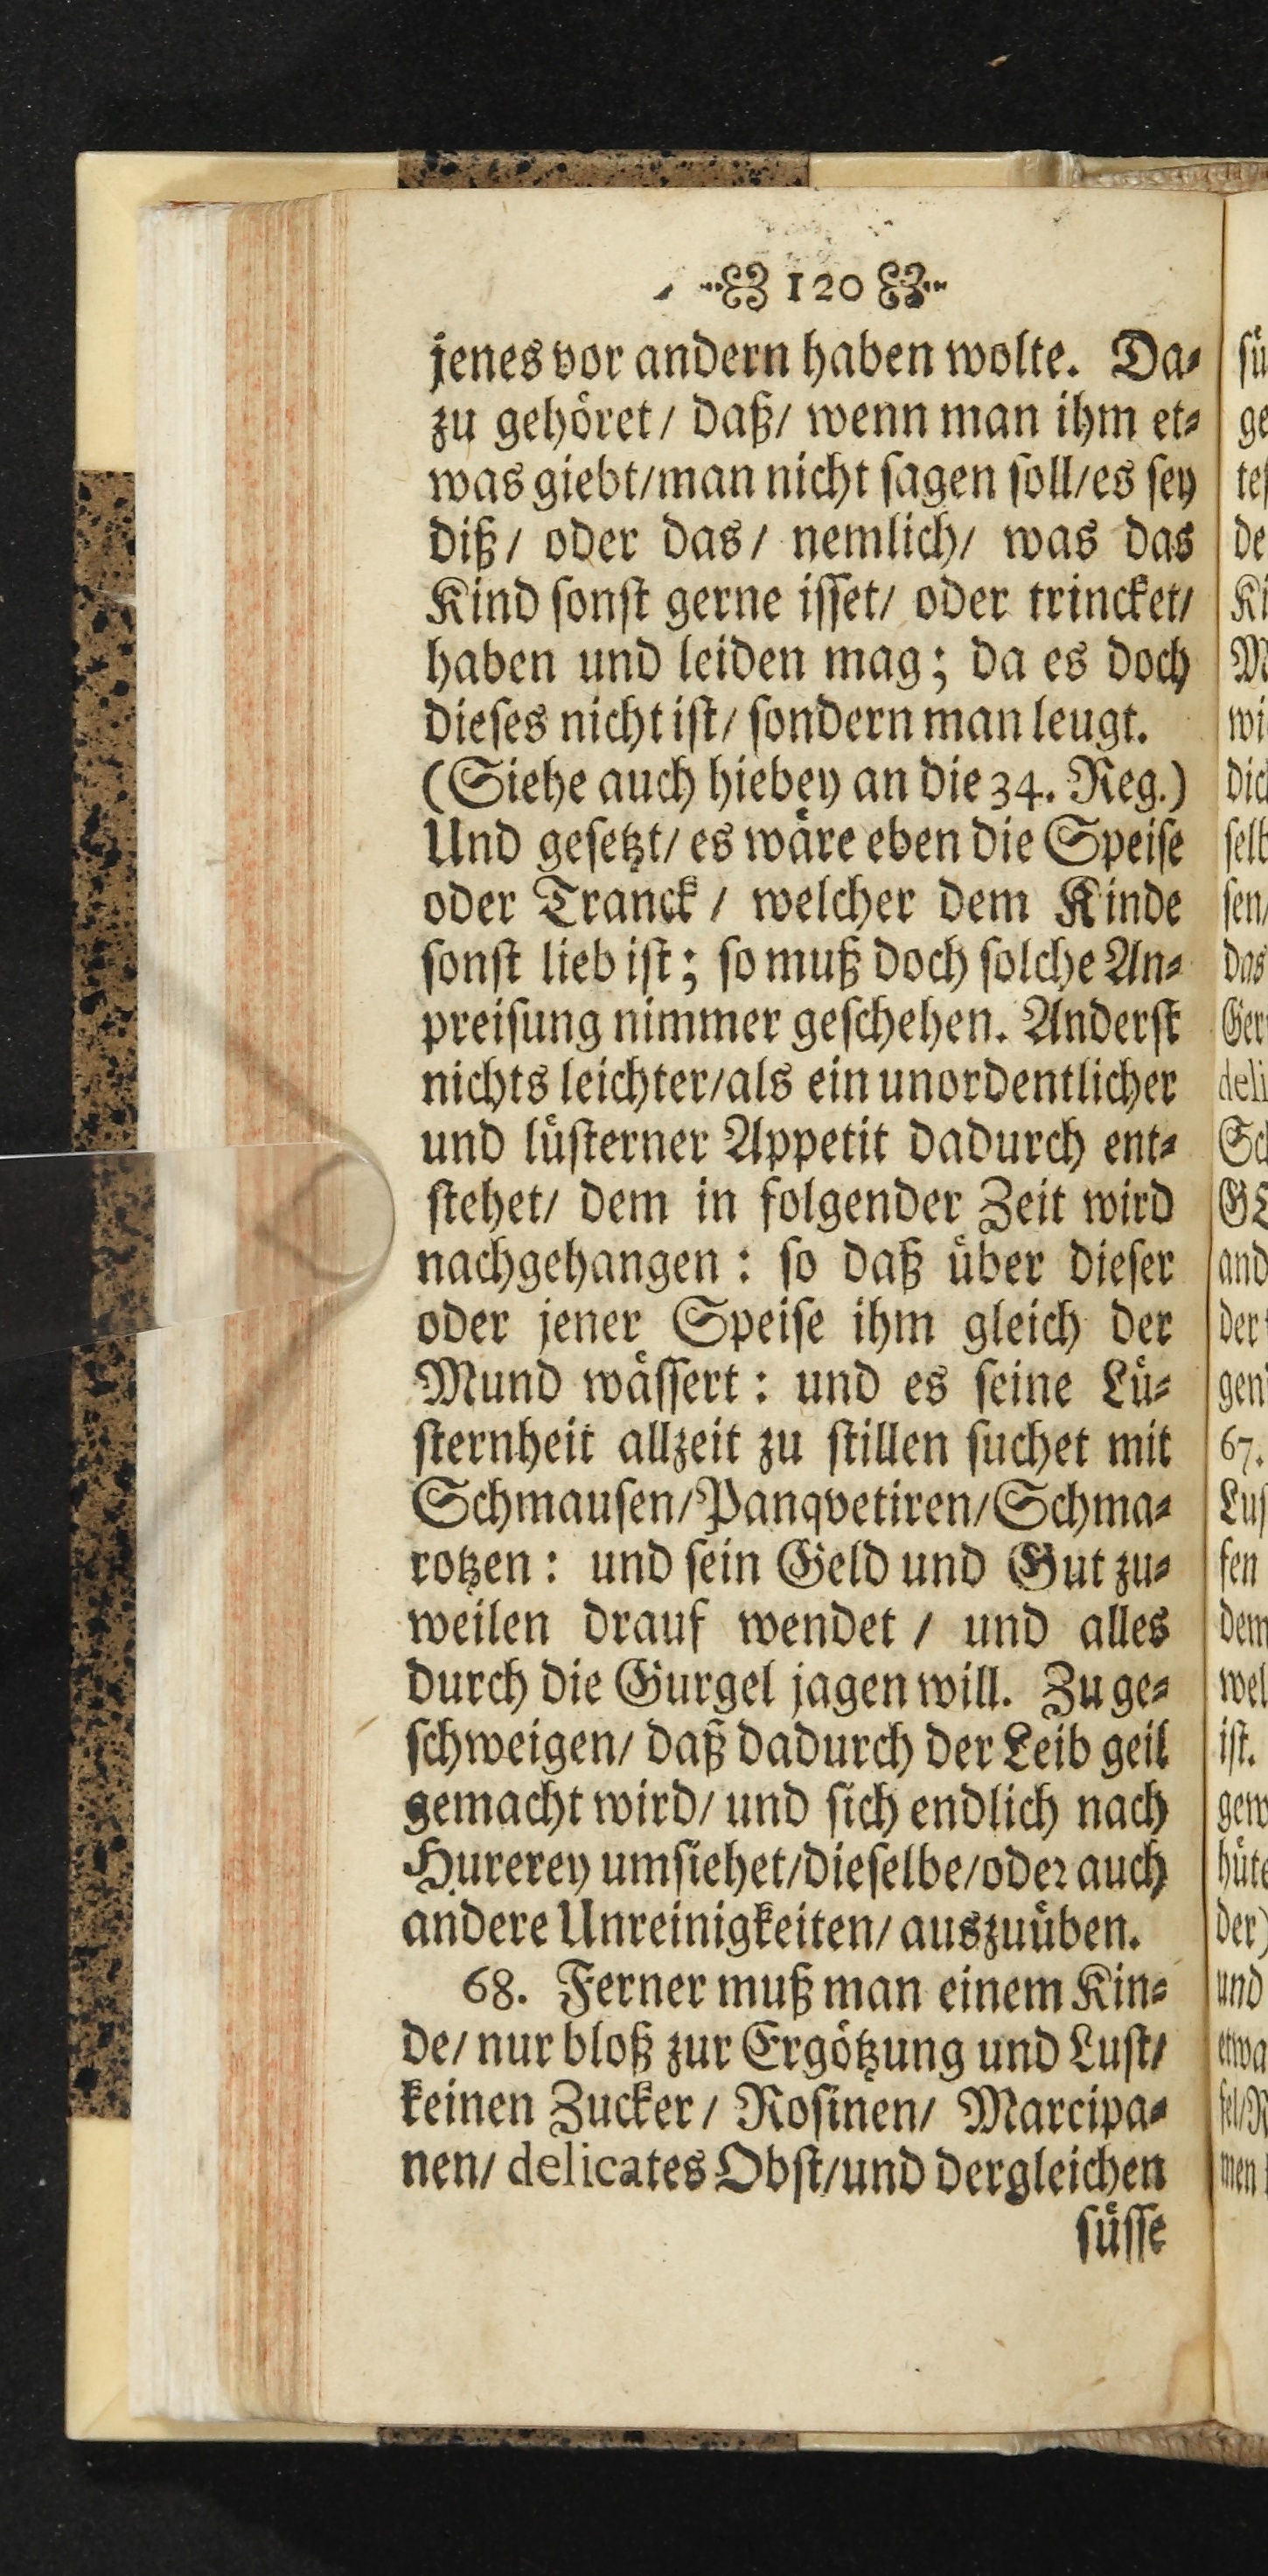 120
jenes vor andern haben wolte. Da-
zu gehöret/ daß/ wenn man ihm et-
was giebt/man nicht sagen soll/es sey
diß/ oder das/ nemlich/ was das
Kind sonst gerne isset/ oder trincket/
haben und leiden mag; da es doch
dieses nicht ist/ sondern man leugt.
(Siehe auch hiebey an die 34. Reg.)
Und gesetzt/ es wäre eben die Speise
oder Tranck / welcher dem Kinde
sonst lieb ist; so muß doch solche An-
preisung nimmer geschehen. Anderst
nichts leichter/als ein unordentlicher
und lüsterner Appetit dadurch ent-
stehet/ dem in folgender Zeit wird
nachgehangen: so daß über dieser
oder jener Speise ihm gleich der
Mund wässert: und es seine Lü-
sternheit allzeit zu stillen suchet mit
Schmausen/Panqvetiren/Schma-
rotzen: und sein Geld und Gut zu-
weilen drauf wendet / und alles
durch die Gurgel jagen will. Zu ge-
schweigen/ daß dadurch der Leib geil
gemacht wird/ und sich endlich nach
Hurerey umsiehet/dieselbe/oder auch
andere Unreinigkeiten/ auszuüben.
68. Ferner muß man einem Kin-
de/ nur bloß zur Ergötzung und Lust/
keinen Zucker / Rosinen/ Marcipa-
nen/ delicates Obst/und dergleichen
süsse